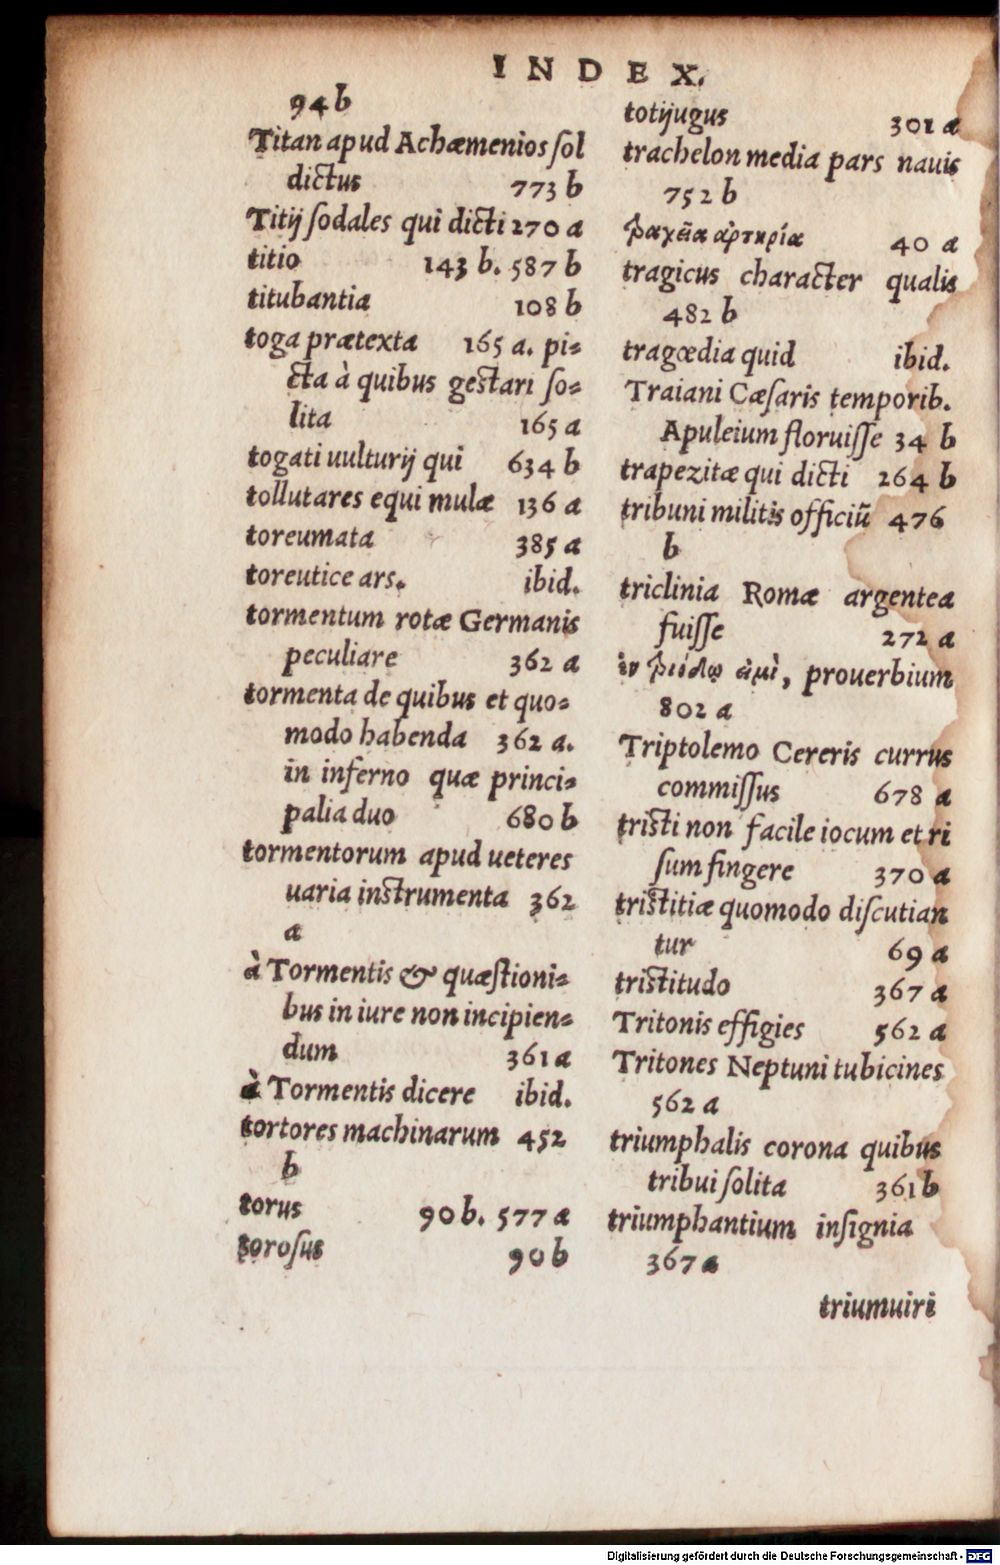 INDEX.
94 b
Titan apud Achæmenios ſol
dictus 773 b
Titij ſodales qui dicti 270 a
titio 143 b. 587 b
titubantia 108 b
toga prætexta 165 a. pi-
cta à quibus geſtari ſo-
lita 165 a
togati uulturij qui 634 b
tollutares equi mulæ 136 a
toreumata 385 a
toreutice ars. ibid.
tormentum rotæ Germanis
peculiare 362 a
tormenta de quibus et quo-
modo habenda 362 a.
in inferno quæ princi-
palia duo 680 b
tormentorum apud ueteres
uaria inſtrumenta 362
a
à Tormentis & quæſtioni-
bus in iure non incipien-
dum 361 a
à Tormentis dicere ibid.
tortores machinarum 452
b
torus 90 b. 577 a
toroſus 90 b
totijugus 301 a
trachelon media pars nauis
752 b
τραχεῖα ἀρτηρία 40 a
tragicus character qualis
482 b
tragœdia quid ibid.
Traiani Cæſaris temporib.
Apuleium floruiſſe 34 b
trapezitæ qui dicti 264 b
tribuni militis officiũ 476
b
triclinia Romæ argentea
fuiſſe 272 a
ἐν τριόδῳ εἰμὶ, prouerbium
802 a
Triptolemo Cereris currus
commiſſus 678 a
triſti non facile iocum et ri
ſum fingere 370 a
triſtitiæ quomodo diſcutian
tur 69 a
triſtitudo 367 a
Tritonis effigies 562 a
Tritones Neptuni tubicines
562 a
triumphalis corona quibus
tribui ſolita 361 b
triumphantium inſignia
367 a
triumuiri
Digitalisierung gefördert durch die Deutsche Forschungsgemeinschaft - DFG